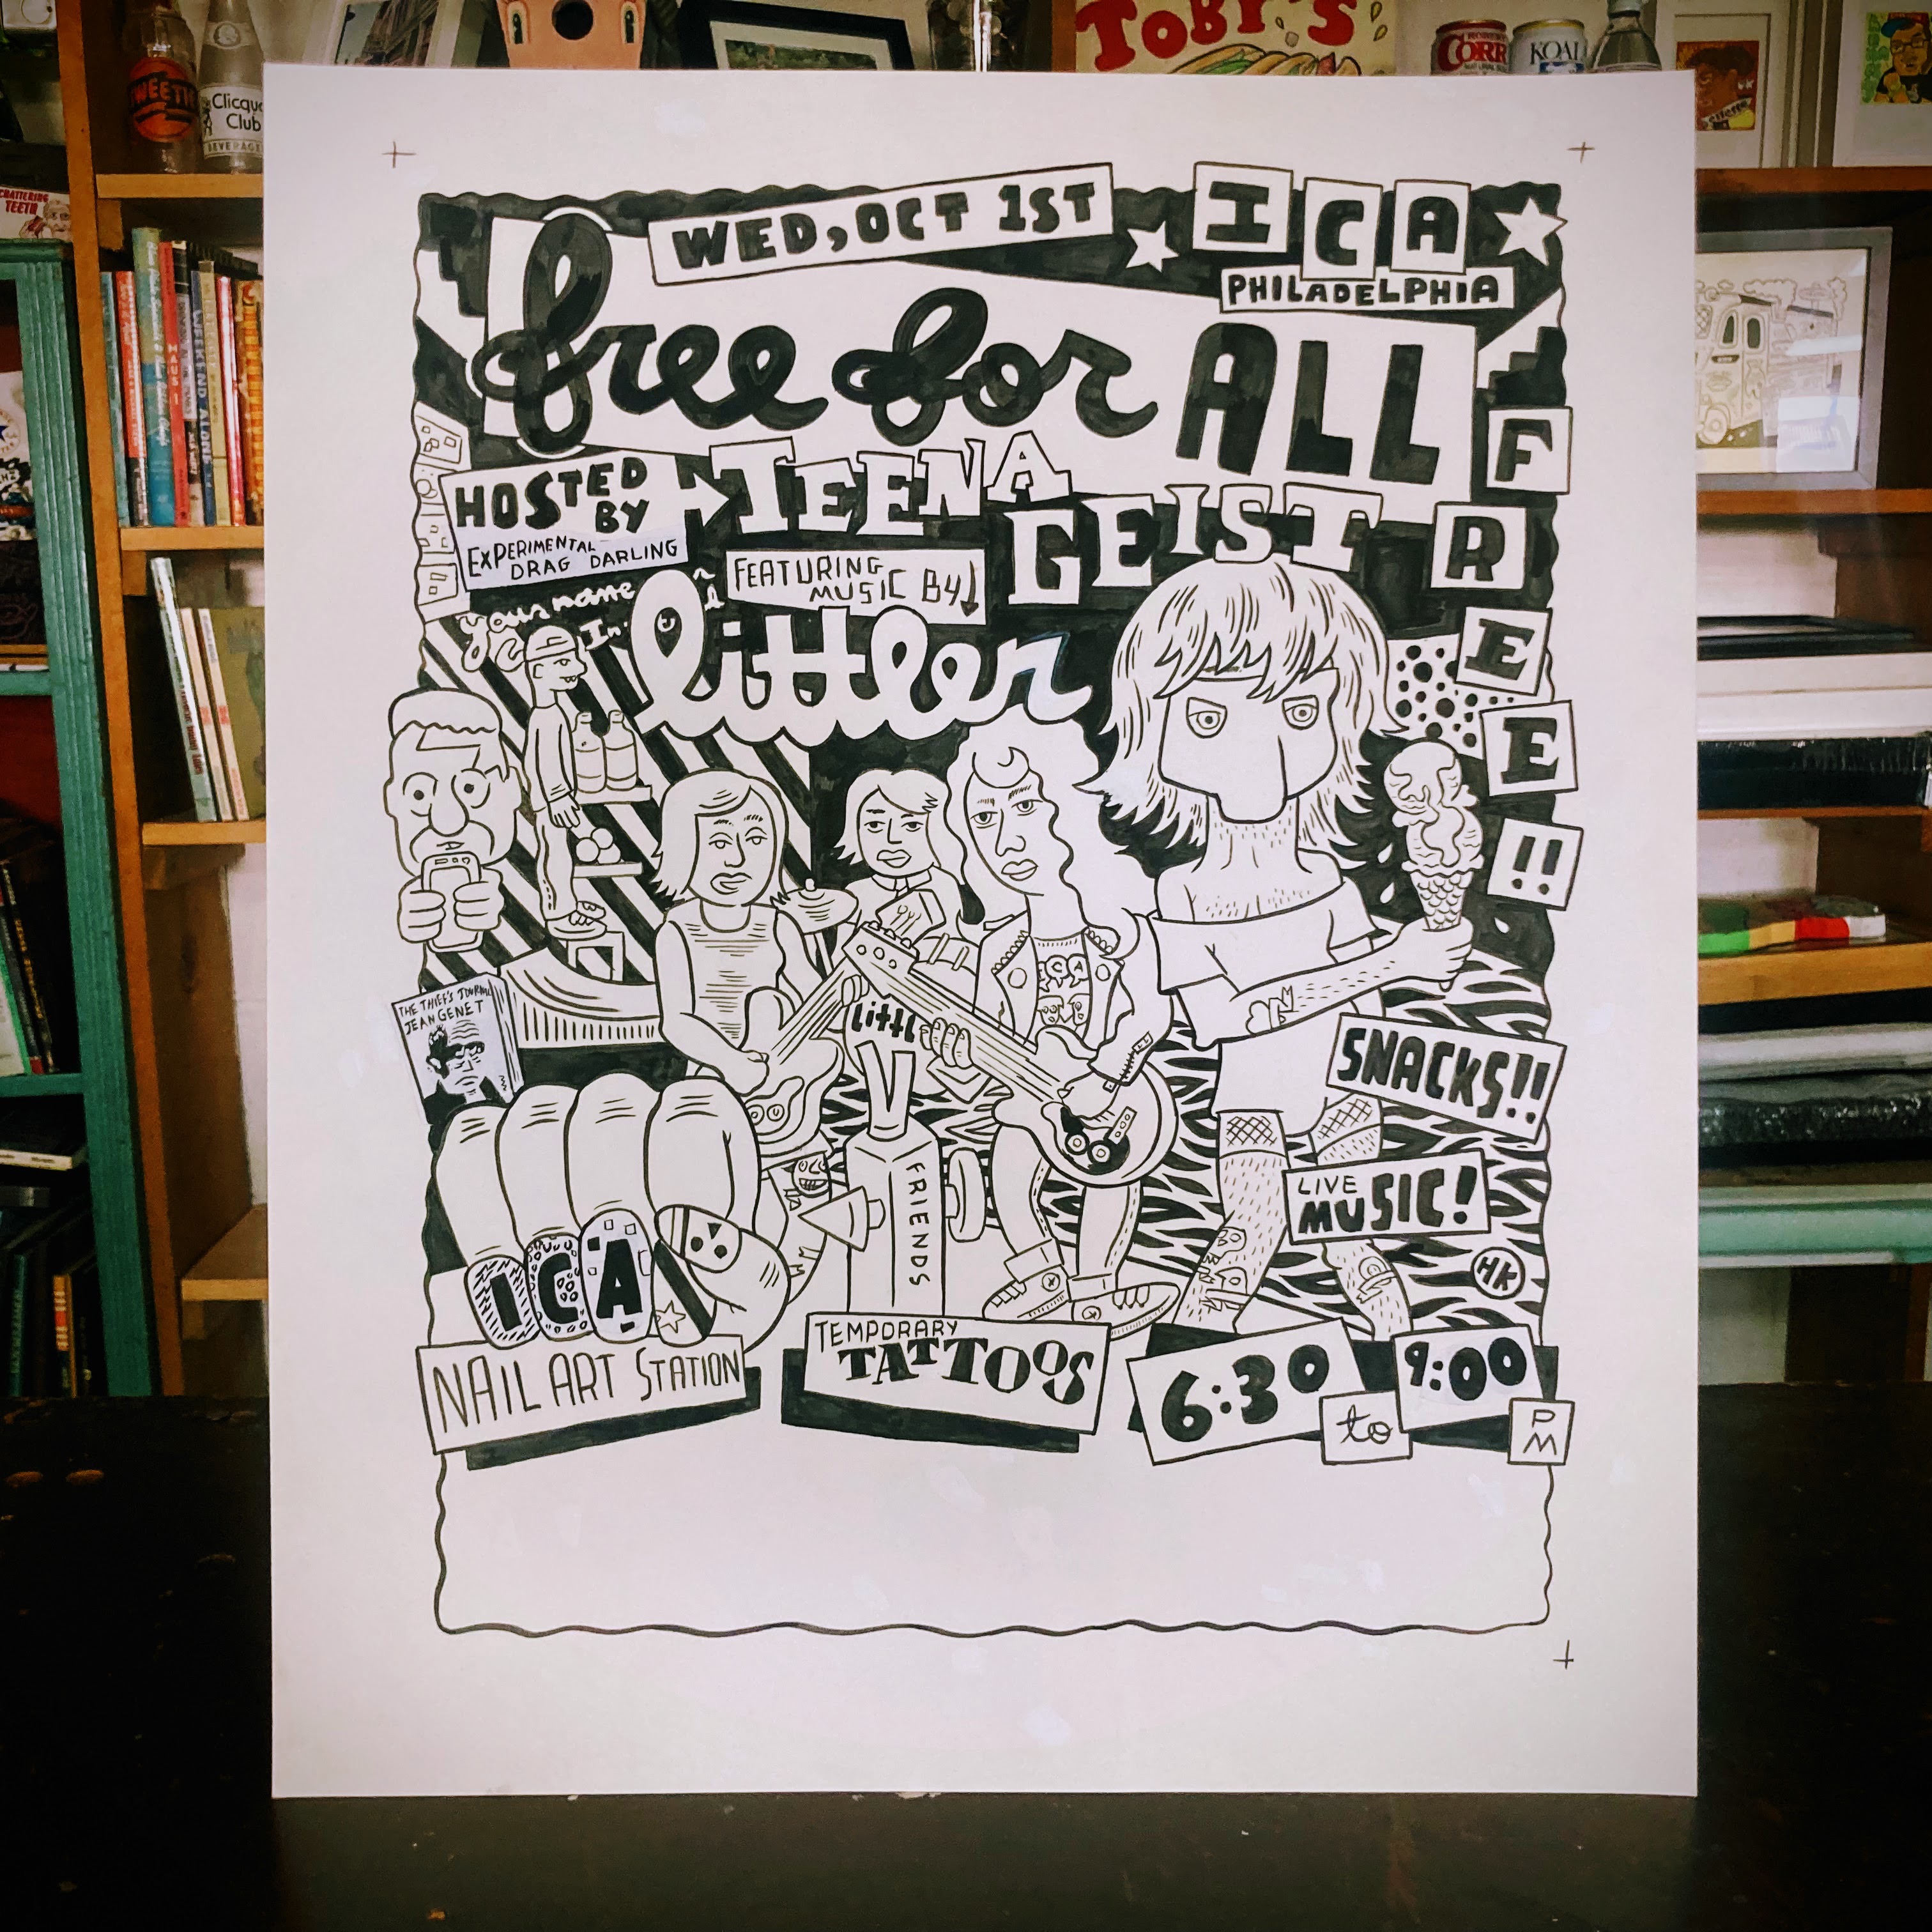 TOBY'S
CORR
KOAL
Clicquo
Club
BEVERAGE
CHATTERING
TEETH
WED, OCT 1ST
ICA
PHILADELPHIA
free for ALL
HOSTED
BY
EXPERIMENTAL
DRAG DARLING
TEENA
GEIST
FREE!!
FEATURING
MUSIC BY
littler
your name
In
THE THIEF'S JOURNAL
JEAN GENET
Littl
FRIENDS
SNACKS!!
LIVE
MUSIC!
HK
ICA
NAIL ART STATION
TEMPORARY
TATTOOS
6:30 to 9:00
PM